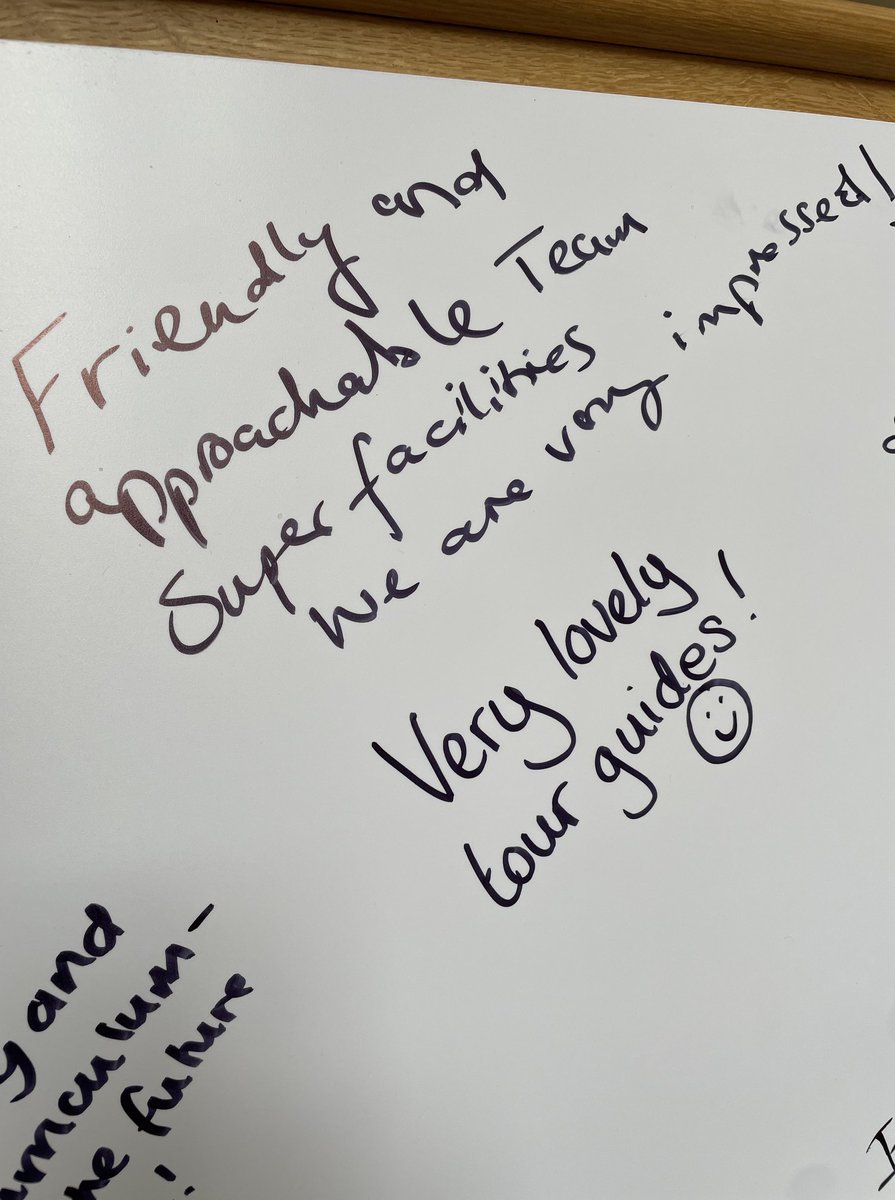 Friendly and
approachable Team
Super facilities
We are very impressed!
Very lovely
tour guides!
and
curriculum-
future
!